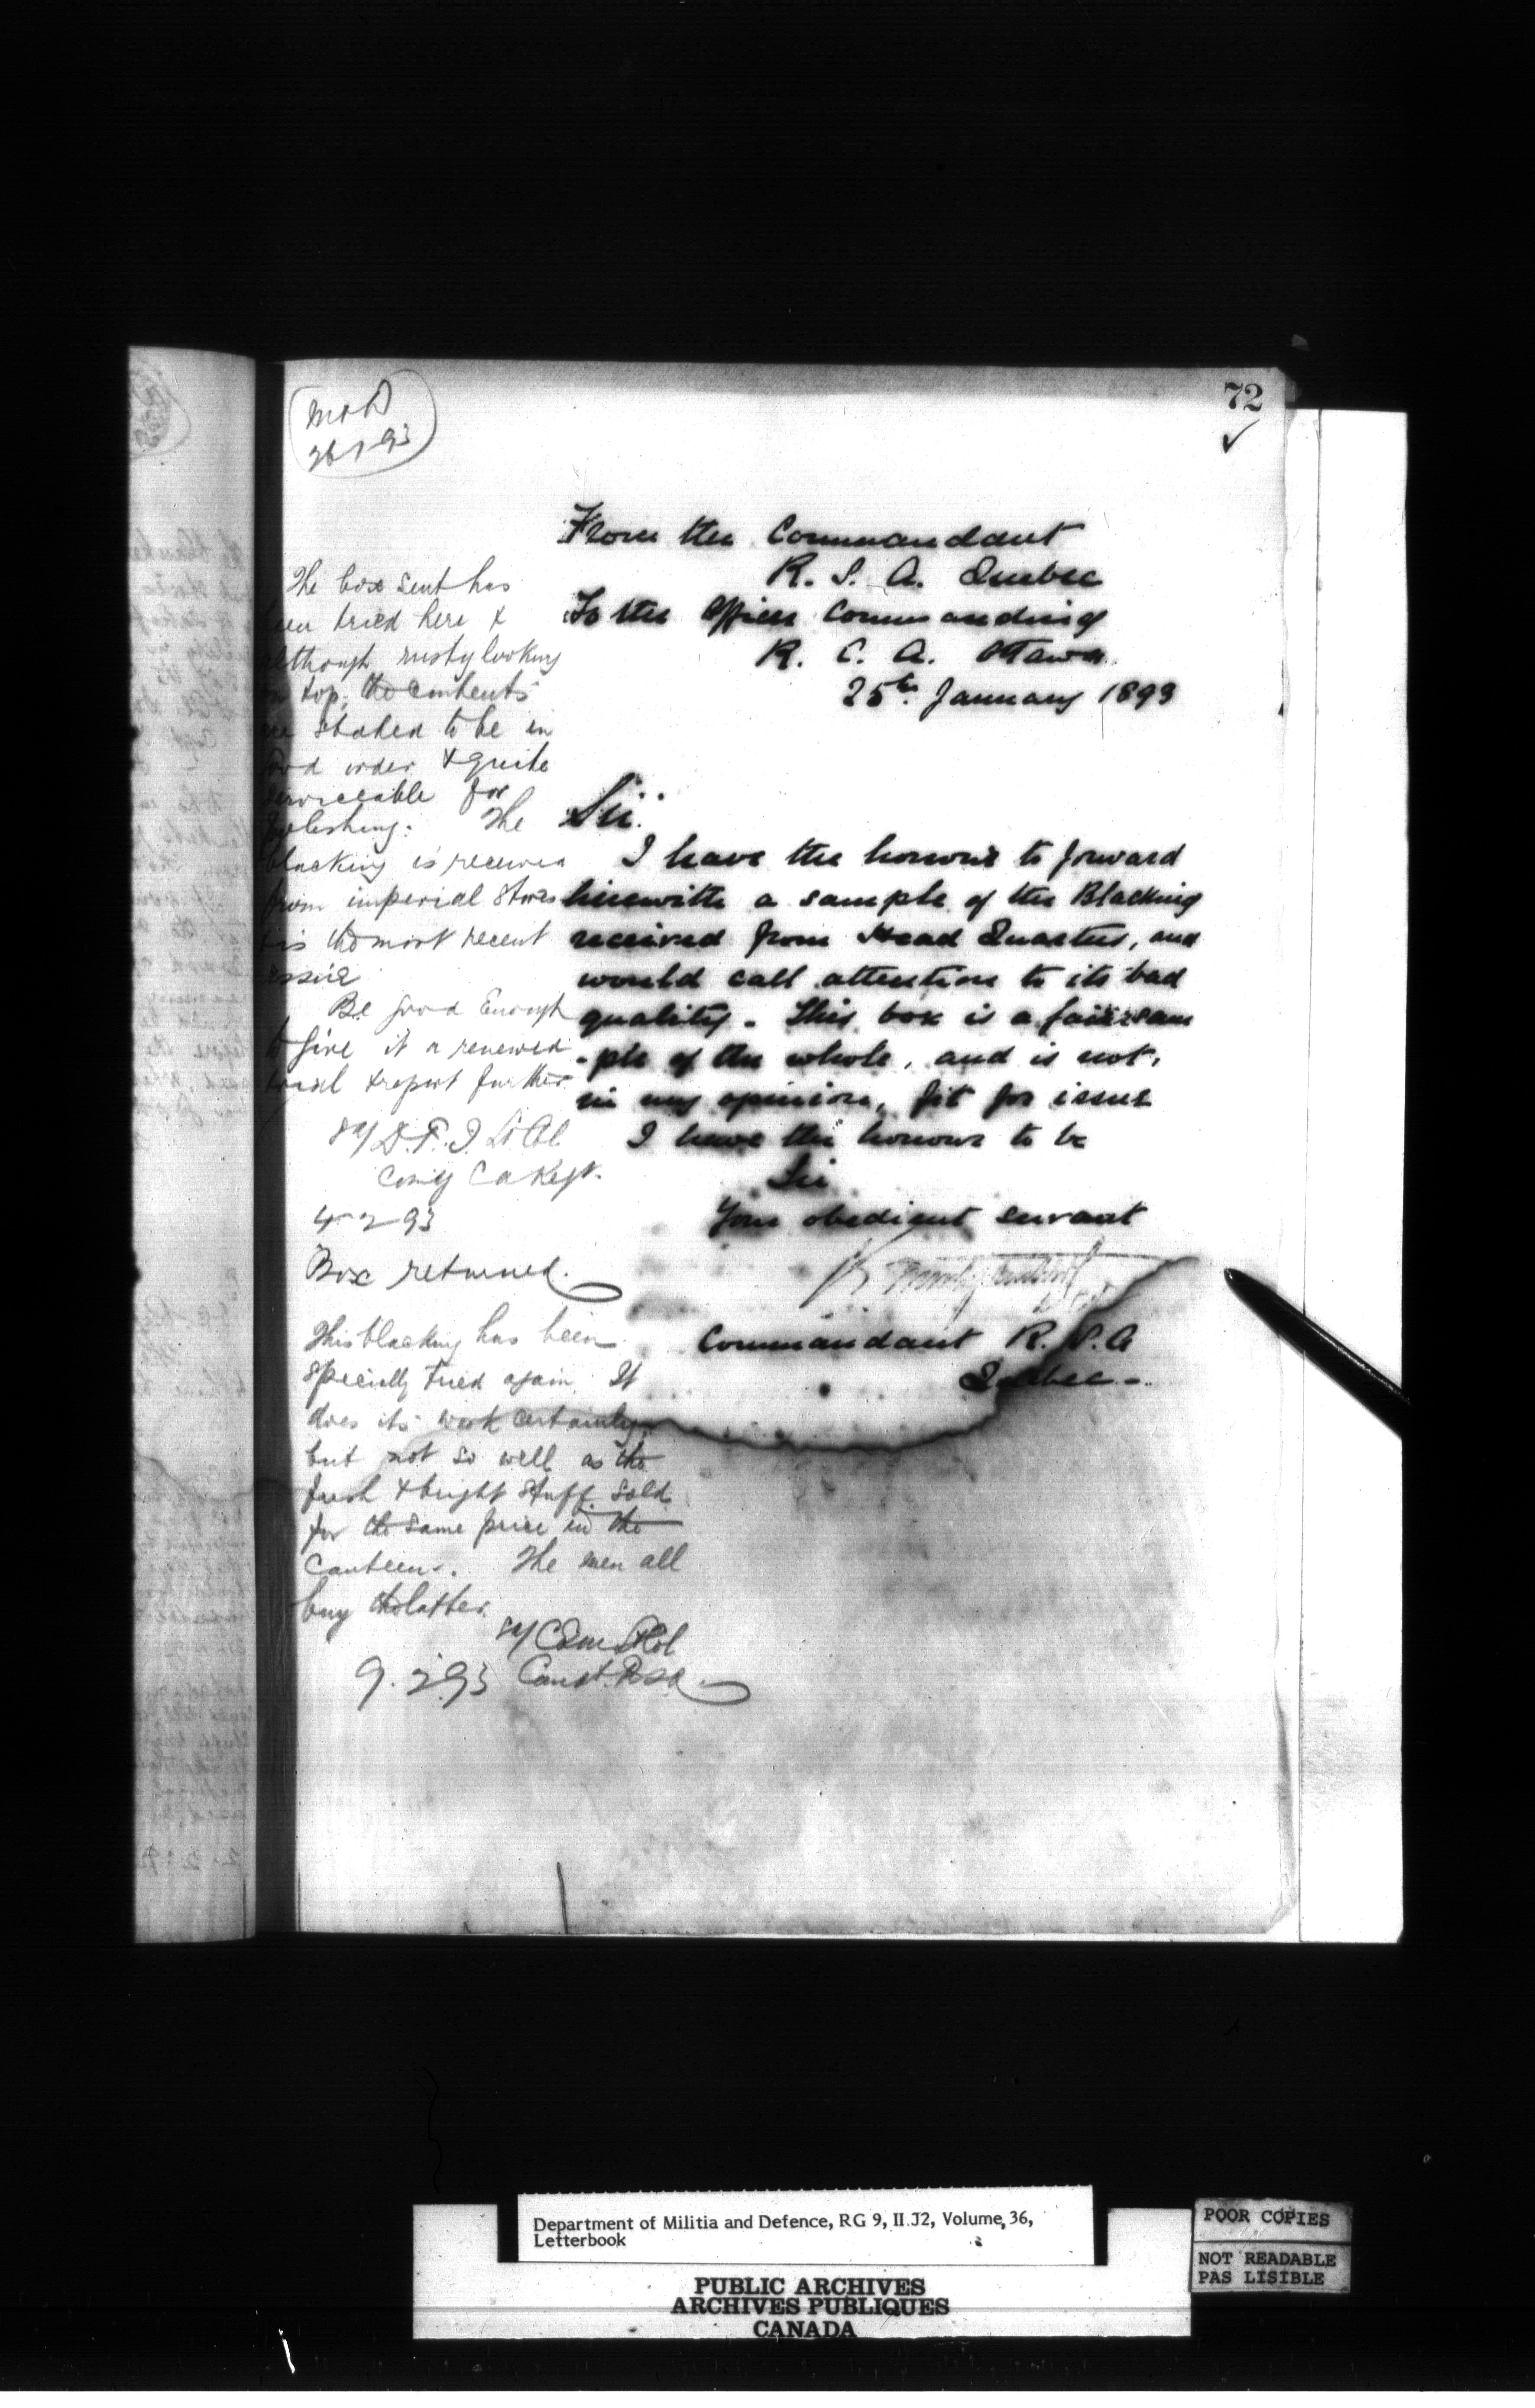 72
M & D
26 1 93
From the Commandant
R. S. A. Quebec
To the Officer Commanding
R. C. A. Ottawa
25th January 1893
Sir
I have the honour to forward
herewith a sample of the Blacking
received from Head Quarters, and
would call attention to its bad
quality. This box is a fair sam
-ple of the whole, and is not,
in my opinion, fit for issue
I have the honour to be
Sir
Your obedient servant
Commandant R. S. A
Quebec -
The box sent has
been tried here &
although rusty looking
on top, the contents
are stated to be in
good order & quite
serviceable for
polishing. The
blacking is received
from imperial Stores
& is the most recent
issue
Be good Enough
to give it a renewed
trial & report further
Sd/ D. T. I. Lt Col
Comg C A Regt.
4-2-93
Box returned.
This blacking has been
specially tried again. It
does its work certainly,
but not so well as the
fresh & bright stuff sold
for the same price in the
Canteens. The men all
buy the latter.
Sd/ Lt Col
9.2.93 Comdt. RSA
Department of Militia and Defence, RG 9, II J2, Volume 36,
Letterbook
PUBLIC ARCHIVES
ARCHIVES PUBLIQUES
CANADA
POOR COPIES
NOT READABLE
PAS LISIBLE